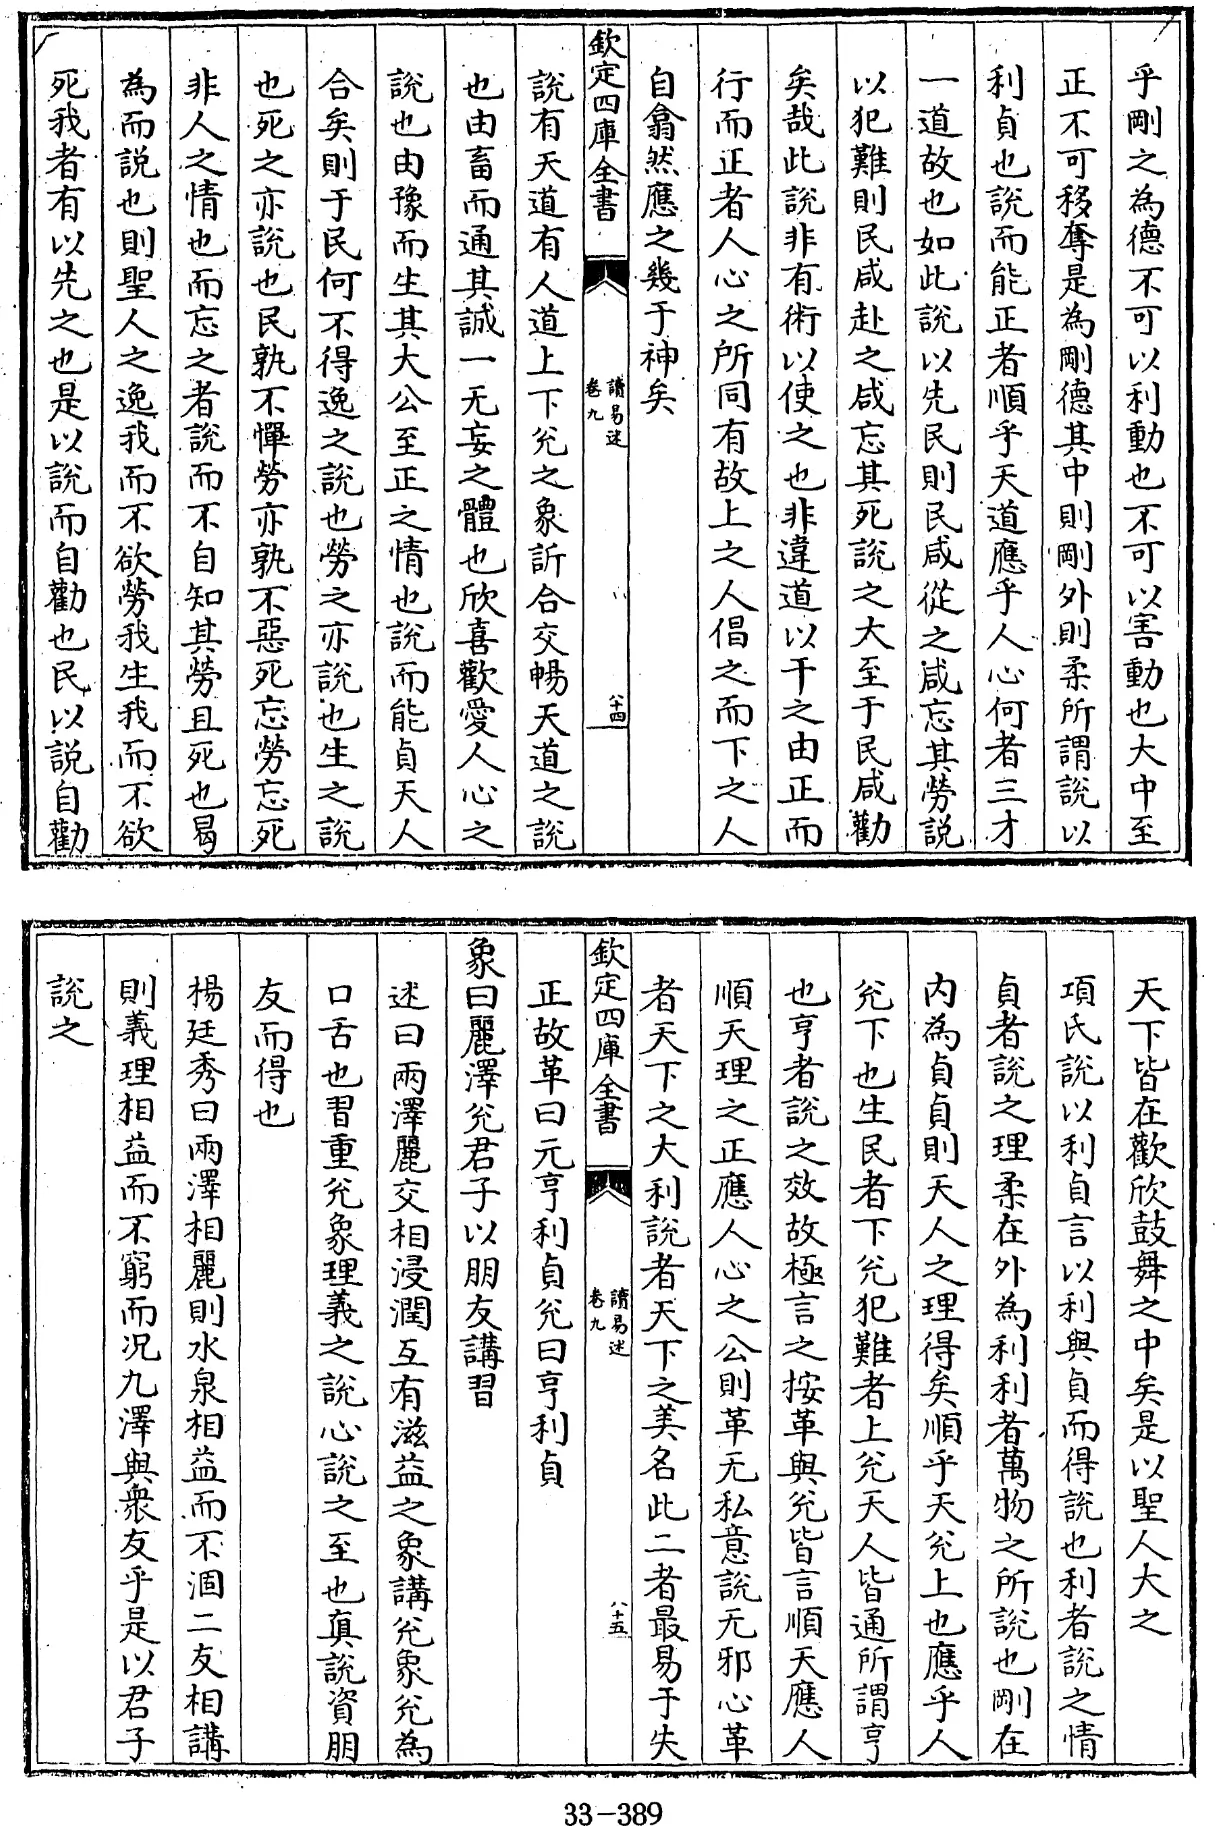 乎剛之為德不可以利動也不可以害動也大中至
正不可移奪是為剛德其中則剛外則柔所謂說以
利貞也說而能正者順乎天道應乎人心何者三才
一道故也如此說以先民則民咸從之咸忘其勞說
以犯難則民咸赴之咸忘其死說之大至于民咸勸
矣哉此說非有術以使之也非違道以干之由正而
行而正者人心之所同有故上之人倡之而下之人
自翕然應之幾于神矣
欽定四庫全書
讀易述
卷九
八十四
說有天道有人道上下兌之象訢合交暢天道之說
也由畜而通其誠一无妄之體也欣喜歡愛人心之
說也由豫而生其大公至正之情也說而能貞天人
合矣則于民何不得逸之說也勞之亦說也生之說
也死之亦說也民孰不憚勞亦孰不惡死忘勞忘死
非人之情也而忘之者說而不自知其勞且死也曷
為而說也則聖人之逸我而不欲勞我生我而不欲
死我者有以先之也是以說而自勸也民以說自勸
天下皆在歡欣鼓舞之中矣是以聖人大之
項氏說以利貞言以利與貞而得說也利者說之情
貞者說之理柔在外為利利者萬物之所說也剛在
內為貞貞則天人之理得矣順乎天兌上也應乎人
兌下也生民者下兌犯難者上兌天人皆通所謂亨
也亨者說之效故極言之按革與兌皆言順天應人
順天理之正應人心之公則革无私意說无邪心革
者天下之大利說者天下之美名此二者最易于失
欽定四庫全書
讀易述
卷九
八十五
正故革曰元亨利貞兌曰亨利貞
象曰麗澤兌君子以朋友講習
述曰兩澤麗交相浸潤互有滋益之象講兌象兌為
口舌也習重兌象理義之說心說之至也真說資朋
友而得也
楊廷秀曰兩澤相麗則水泉相益而不涸二友相講
則義理相益而不窮而況九澤與衆友乎是以君子
說之
33-389